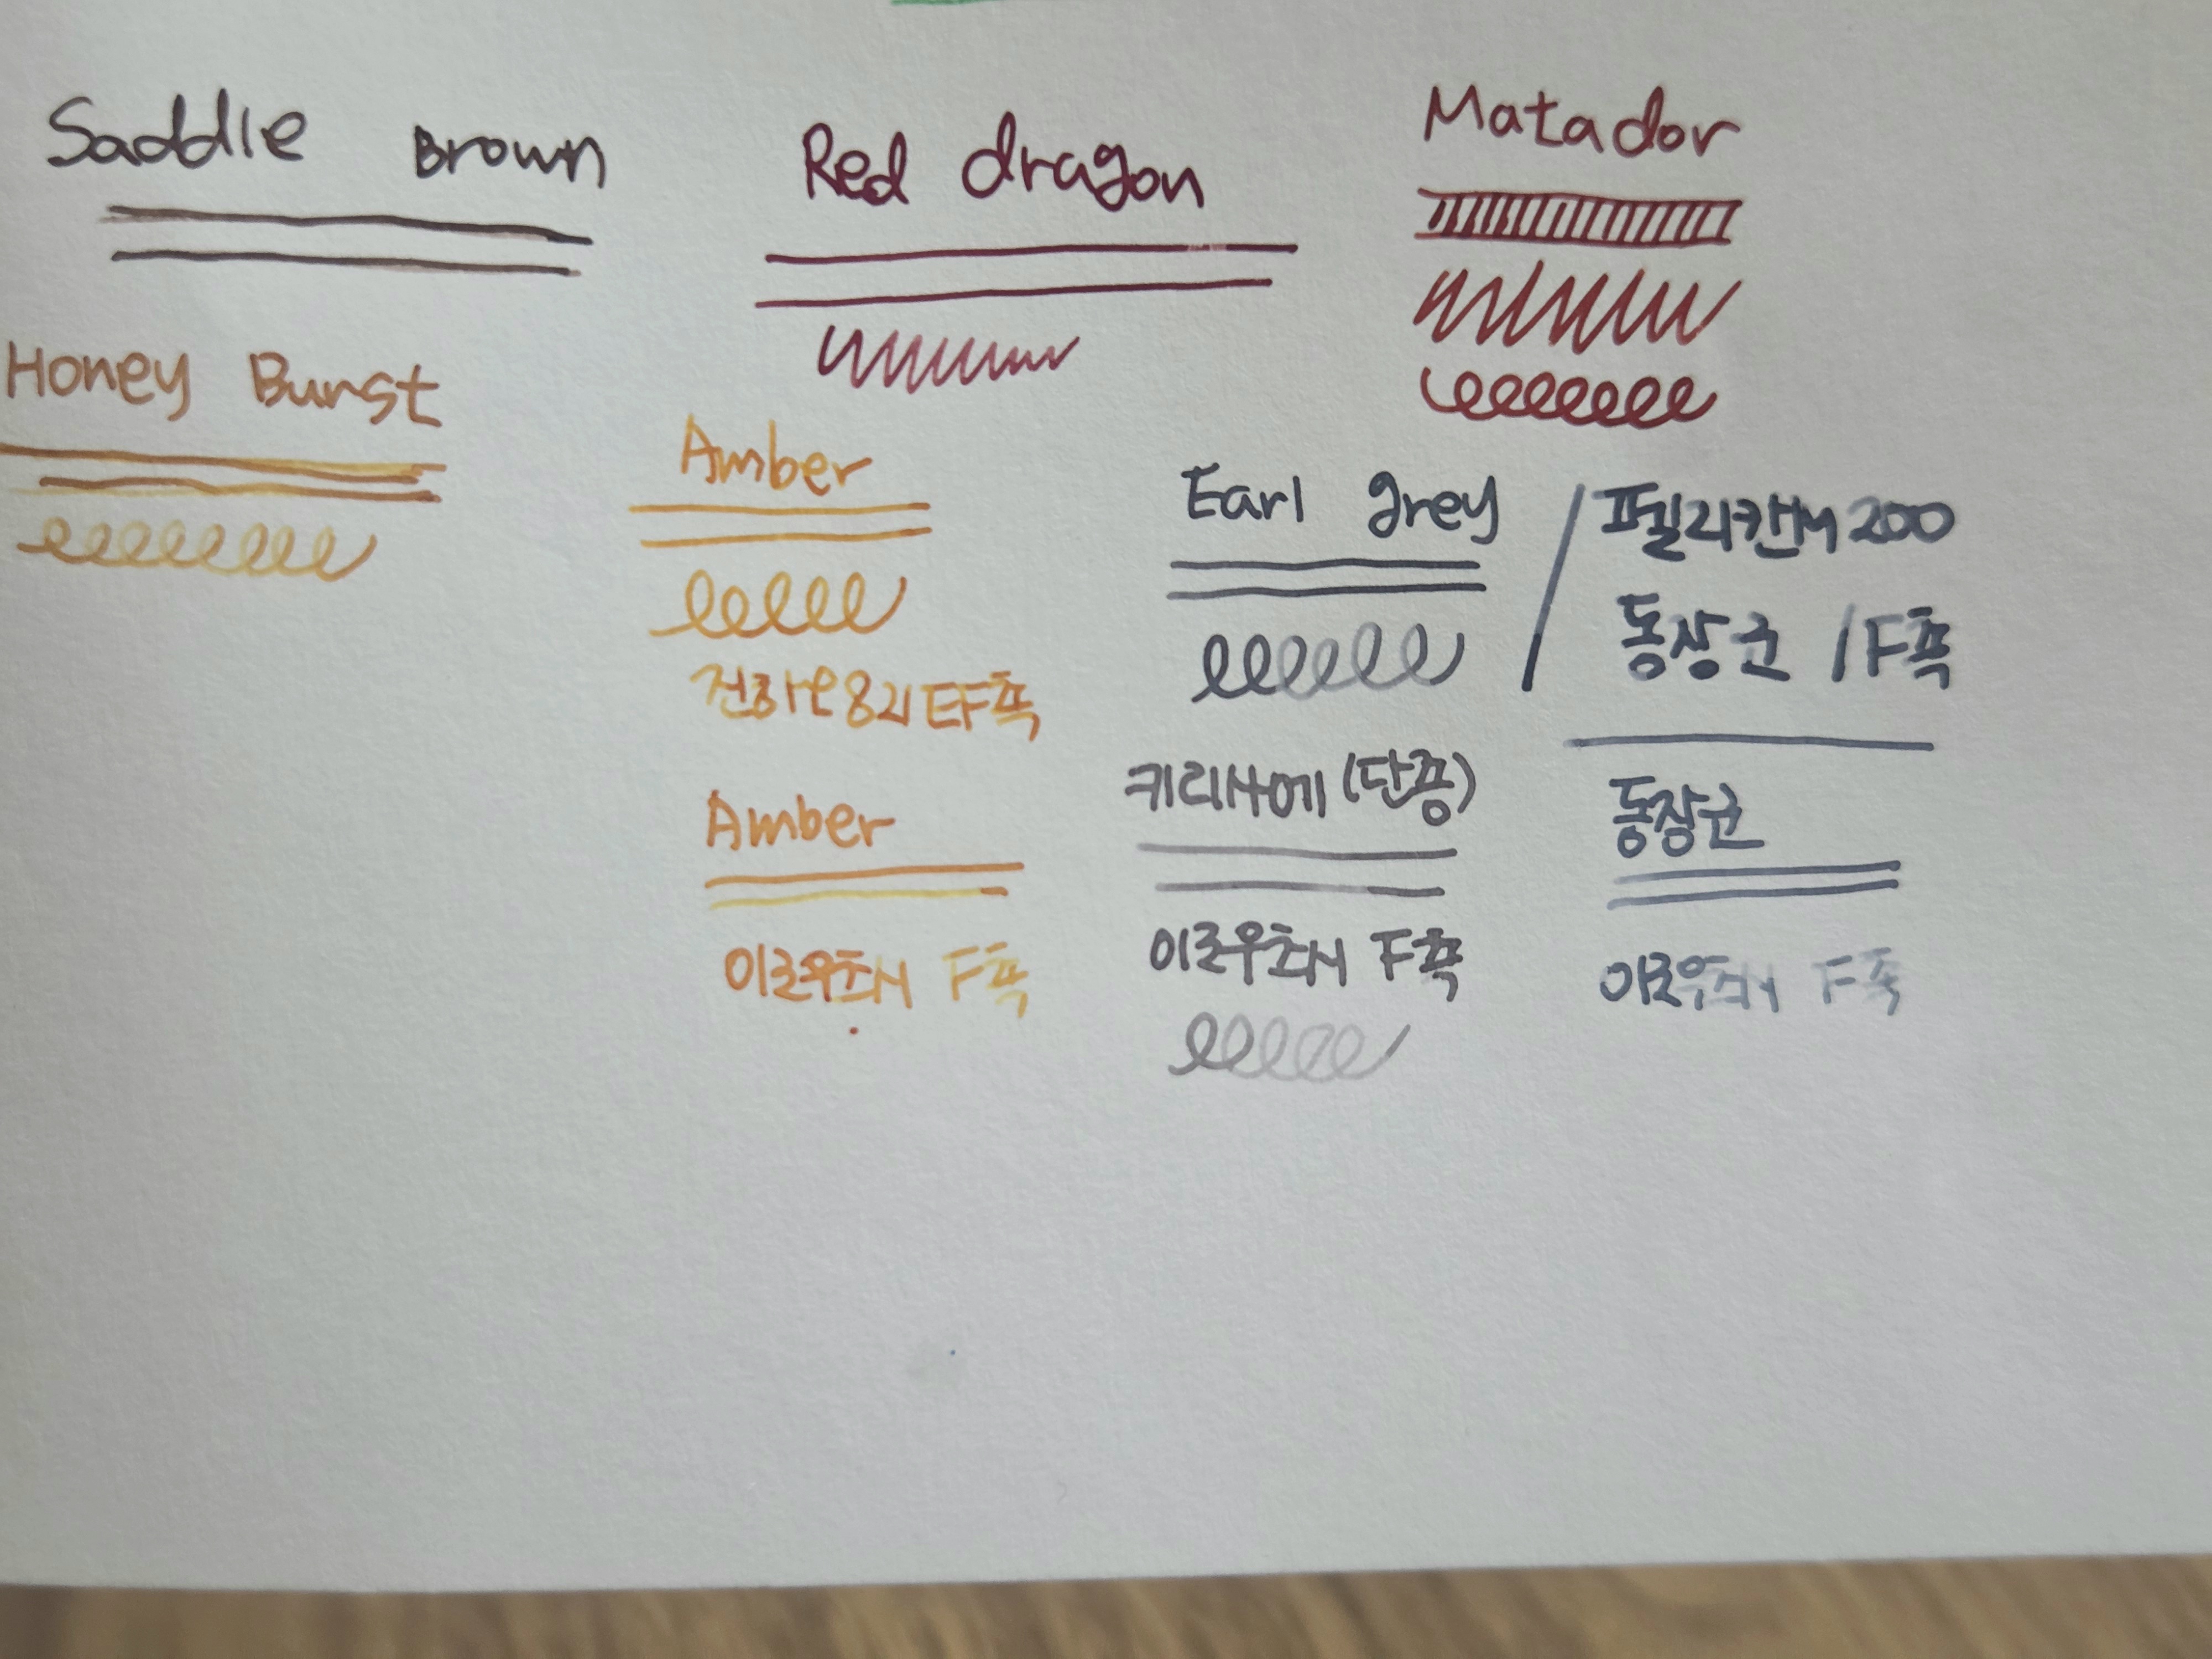 Saddle Brown
Red dragon
Matador
Honey Burst
Amber
EF촉
Amber
이로우츠시 F촉
Earl grey
키리사메 (단종)
이로우츠시 F촉
펠리칸 M200
동장군 / F촉
동장군
이로우츠시 F촉